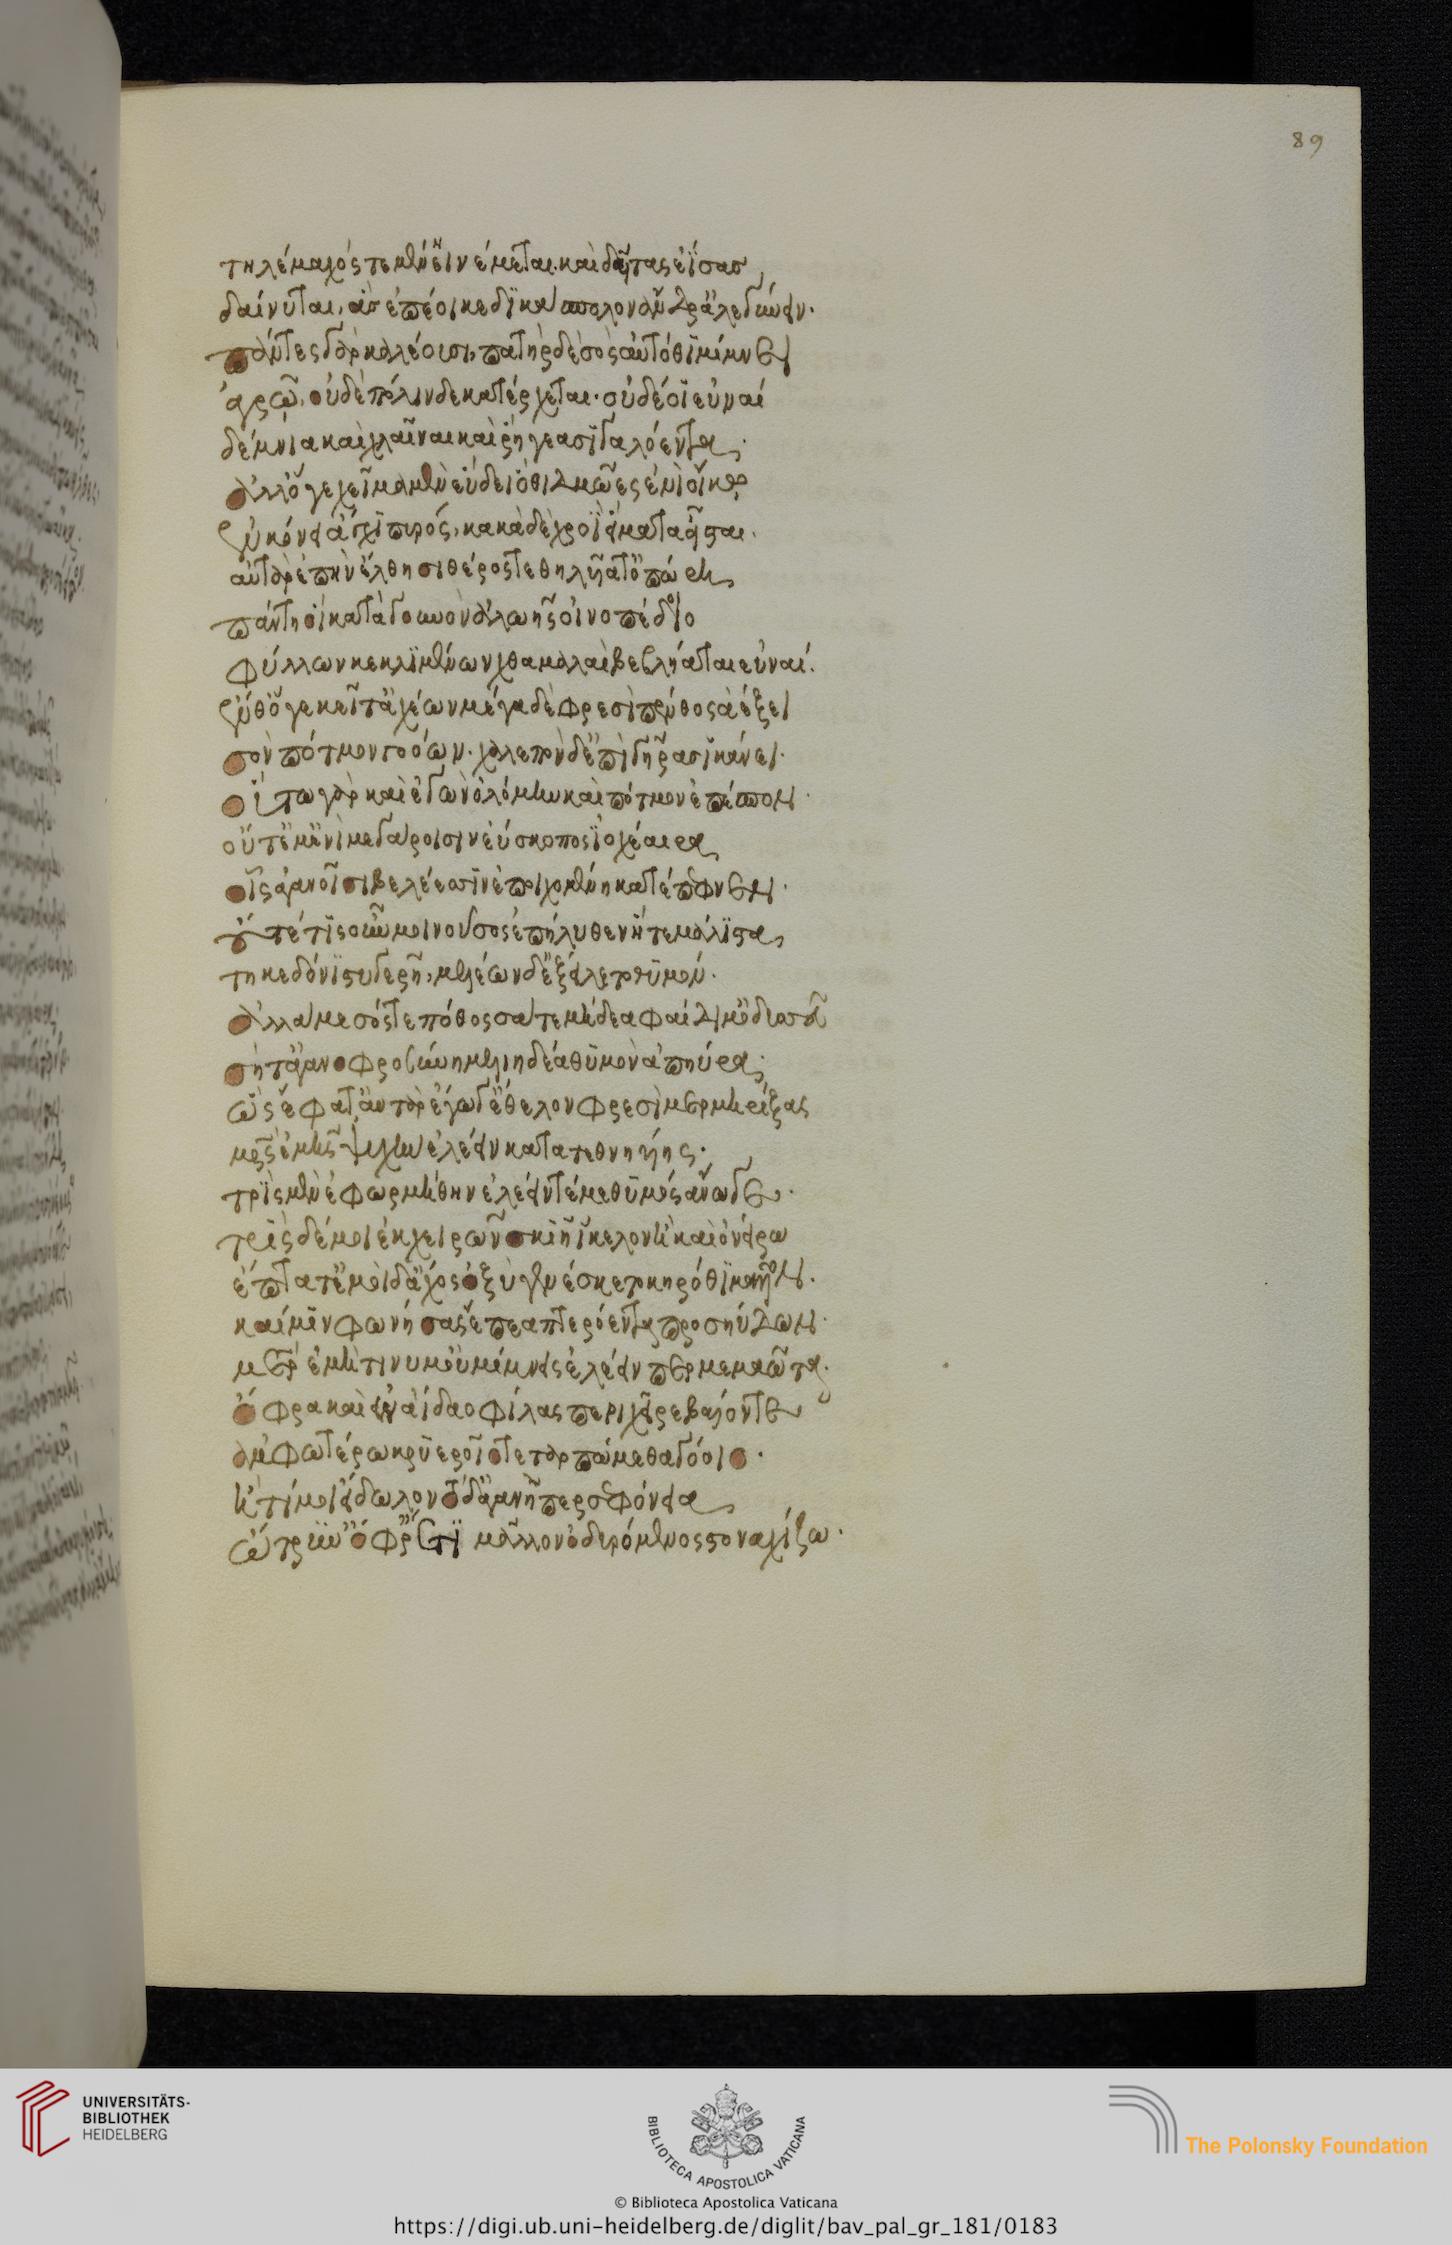 89
τηλέμαχός τεμένη νέμεται. καὶ δαῖτας ἐΐσας
δαίνυται, ἃς ἐπέοικε δικασπόλον ἄνδρ' ἀλεγύνειν.
πάντες γὰρ καλέουσι, πατὴρ δὲ σὸς αὐτόθι μίμνει
ἀγρῷ, οὐδὲ πόλινδε κατέρχεται. οὐδέ οἱ εὐναί
δέμνια καὶ χλαῖναι καὶ ῥήγεα σιγαλόεντα.
ἀλλ' ὅγε χεῖμα μὲν εὕδει ὅθι δμῶες ἐνὶ οἴκῳ
ἐν κόνει ἄγχι πυρός, κακὰ δὲ χροῒ εἵματα εἷσται.
αὐτὰρ ἐπὴν ἔλθησι θέρος τεθηλυῖά τ' ὀπώρη,
πάντη οἱ κατὰ γουνὸν ἀλωῆς οἰνοπέδοιο
φύλλων κεκλιμένων χθαμαλαὶ βεβλήαται εὐναί.
ἔνθ' ὅγε κεῖτ' ἀχέων μέγα δὲ φρεσὶ πένθος ἀέξει
σὸν πότμον γοόων. χαλεπὸν δ' ἐπὶ γῆρας ἱκάνει.
οὕτω γὰρ καὶ ἐγὼν ὀλόμην καὶ πότμον ἐπέσπον.
οὔτ' ἔμ' ἐνὶ μεγάροισιν ἐύσκοπος ἰοχέαιρα
οἷς ἀγανοῖσι βελέεσσιν ἐποιχομένη κατέπεφνεν.
οὔτέ τις οὖν μοι νοῦσος ἐπήλυθεν ἥτε μάλιστα
τηκεδόνι στυγερῇ, μελέων δ' ἐξείλετο θυμόν.
ἀλλά με σός τε πόθος σά τε μήδεα φαίδιμ' ὀδυσσεῦ
σή τ' ἀγανοφροσύνη μελιηδέα θυμὸν ἀπηύρα.
ὣς ἔφατ' αὐτὰρ ἐγώγ' ἔθελον φρεσὶ μερμηρίξας
μητρὸς ἐμῆς ψυχὴν ἑλέειν κατατεθνηυίης.
τρὶς μὲν ἐφωρμήθην ἑλέειν τέ με θυμὸς ἀνώγει.
τρὶς δέ μοι ἐκ χειρῶν σκιῇ ἴκελον ἢ καὶ ὀνείρῳ
ἔπτατ' ἐμοὶ δ' ἄχος ὀξὺ γενέσκετο κηρόθι μᾶλλον.
καί μιν φωνήσας ἔπεα πτερόεντα προσηύδων.
μῆτερ ἐμὴ τί νύ μ' οὐ μίμνεις ἑλέειν μεμαῶτα.
ὄφρα καὶ εἰν ἀΐδαο φίλας περὶ χεῖρε βαλόντε
ἀμφοτέρω κρυεροῖο τεταρπώμεθα γόοιο.
ἦ τί μοι εἴδωλον τόδ' ἀγαυὴ περσεφόνεια
ὤτρυν' ὄφρ' ἔτι μᾶλλον ὀδυρόμενος στοναχίζω.
UNIVERSITÄTS-
BIBLIOTHEK
HEIDELBERG
BIBLIOTECA APOSTOLICA VATICANA
The Polonsky Foundation
© Biblioteca Apostolica Vaticana
https://digi.ub.uni-heidelberg.de/diglit/bav_pal_gr_181/0183